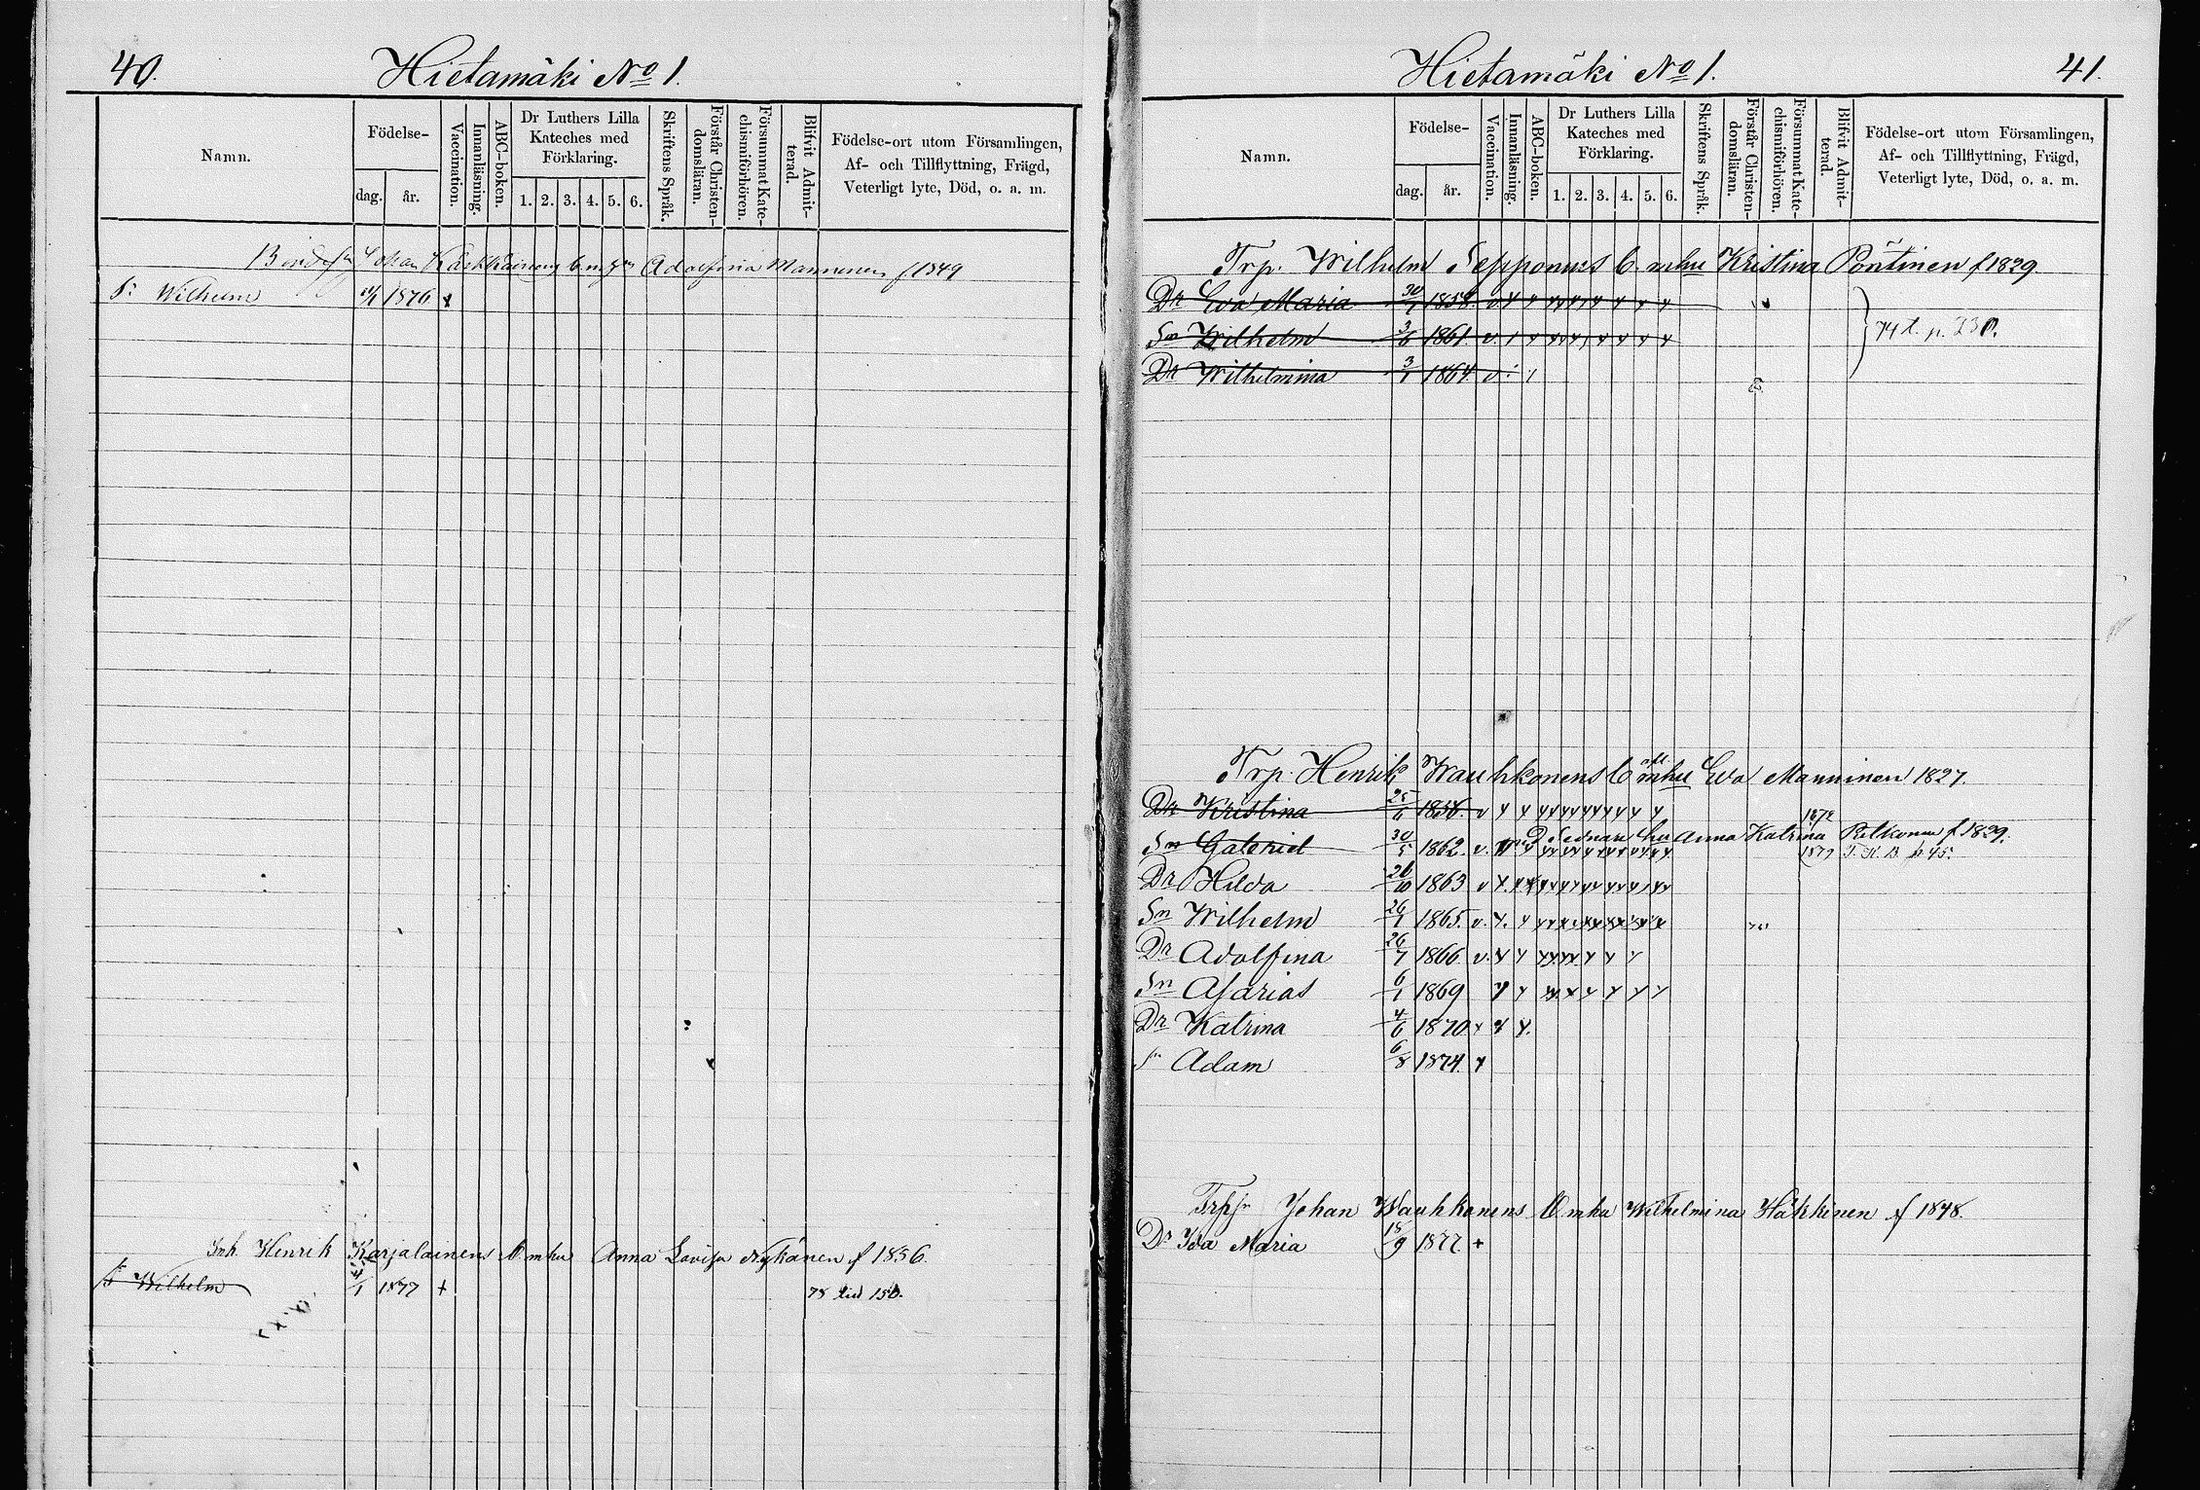 40.
Hietamäki No 1.
Namn.
Födelse-
dag.
år.
Vaccination.
Innanläsning.
ABC-boken.
Dr Luthers Lilla
Kateches med
Förklaring.
1. 2. 3. 4. 5. 6.
Skriftens Språk.
Förstår Christen-
domsläran.
Försummat Kate-
chismiförhören.
Blifvit Admit-
terad.
Födelse-ort utom Församlingen,
Af- och Tillflyttning, Frägd,
Veterligt lyte, Död, o. a. m.
Johan Kärkkäinens Adolfina Manninen f 1849
Sn Wilhelm 1876
Inh. Henrik Karjalainens mhu Anna Lovisa Nykänen f 1856.
S. Wilhelm 4/1 1877 +
78 Lit 150.
Hietamäki No 1.
41.
Namn.
Födelse-
dag.
år.
Vaccination.
Innanläsning.
ABC-boken.
Dr Luthers Lilla
Kateches med
Förklaring.
1. 2. 3. 4. 5. 6.
Skriftens Språk.
Förstår Christen-
domsläran.
Försummat Kate-
chismiförhören.
Blifvit Admit-
terad.
Födelse-ort utom Församlingen,
Af- och Tillflyttning, Frägd,
Veterligt lyte, Död, o. a. m.
Trp. Wilhelm Tepponens mhu Kristina Pöntinen f 1829
Dr Eva Maria 30/1 1858. v
Sn Wilhelm 3/6 1861 v.
74 l. p. 230.
Dr Wilhelmina 3/1 1864 v
Trp. Henrik Wauhkonens mhu Eva Manninen 1827.
Dr Kristina 25/6 1856. v
1872
Sednare hu Anna Katrina Pelkonen f 1829.
Sn Gabriel 30/5 1862. v.
1879 I. K. B. p 45.
Dr Hilda 26/10 1863 v
Sn Wilhelm 26/1 1865. v.
Dr Adolfina 26/7 1866 v.
Sn Asarias 6/1 1869
Dr Katrina 4/6 1870
Sn Adam 6/8 1874.
Johan Wauhkonens mhu Wilhelmina Häkkinen f 1848.
Dr Ida Maria 15/9 1877 +